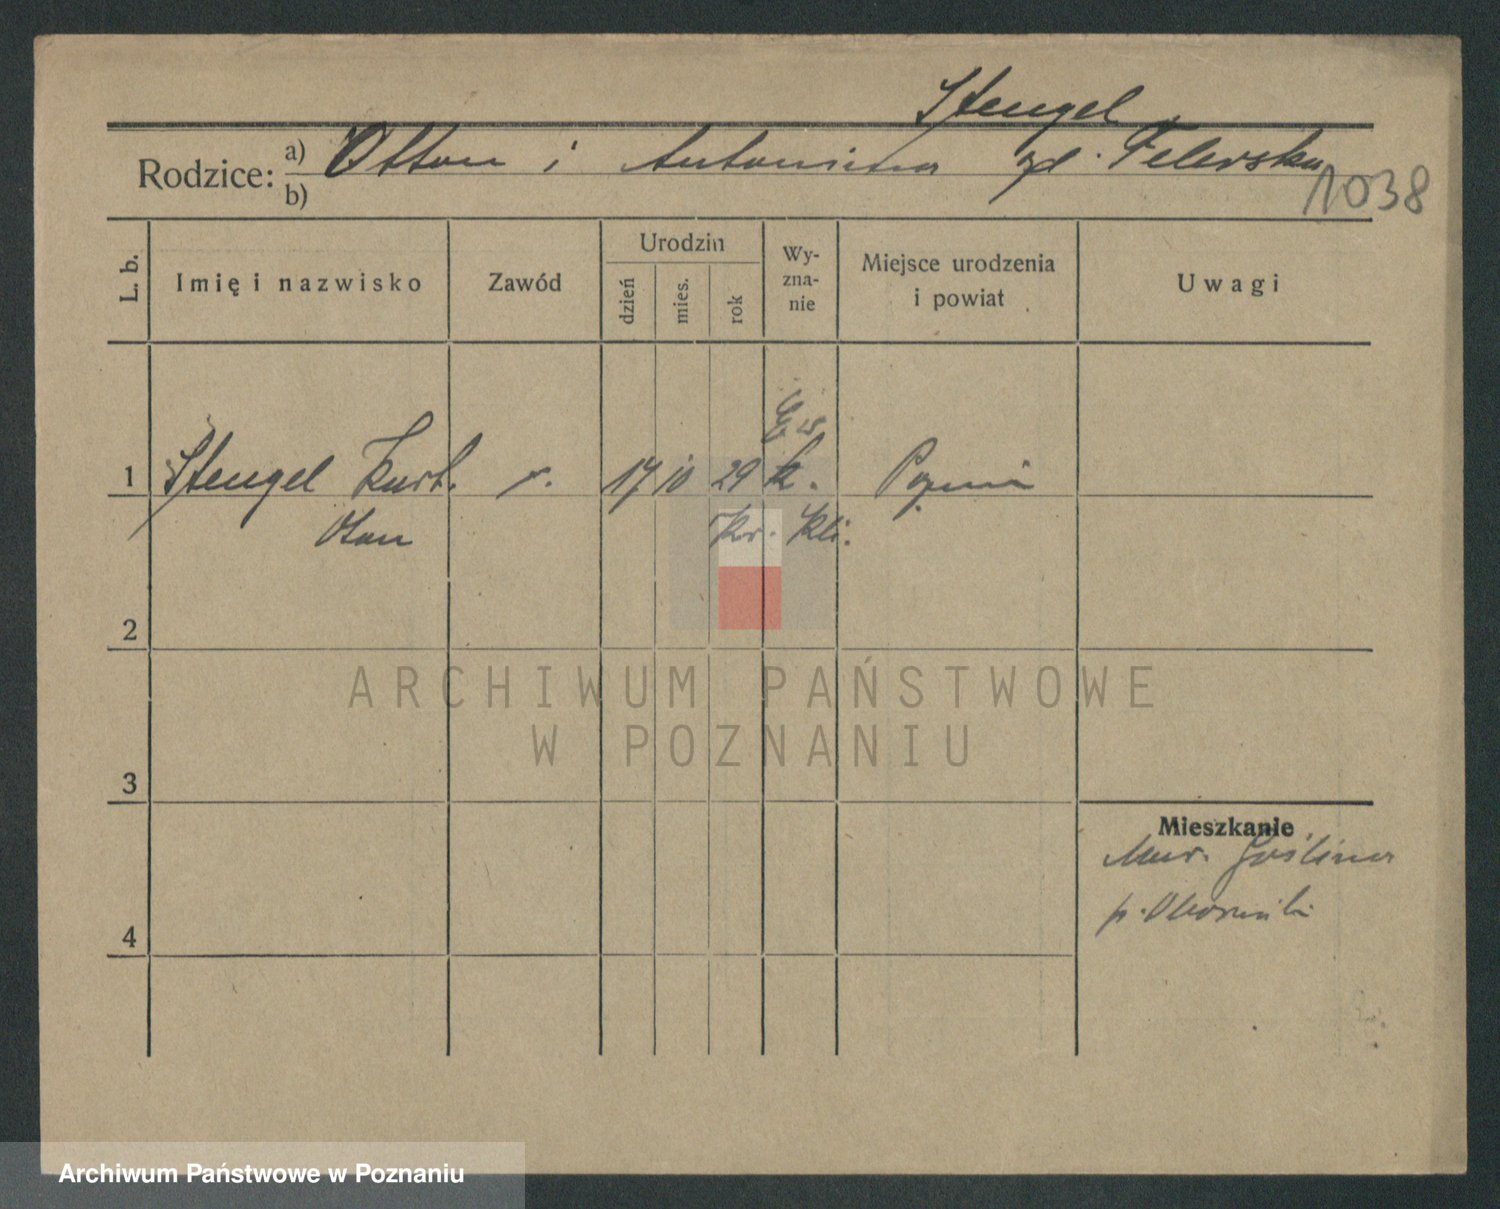 Stengel
Rodzice: a) Otton i Antonina zd. Felerska
b)
1038
L. b. Imię i nazwisko Zawód Urodzin dzień mies. rok Wy-zna-nie Miejsce urodzenia i powiat Uwagi
Ew.
1 Stengel Kurt r. 17 10 29 k.
Oton
2
3
Mieszkanie
Mur. Goślina
p. Oborniki
4
ARCHIWUM PAŃSTWOWE
W POZNANIU
Archiwum Państwowe w Poznaniu